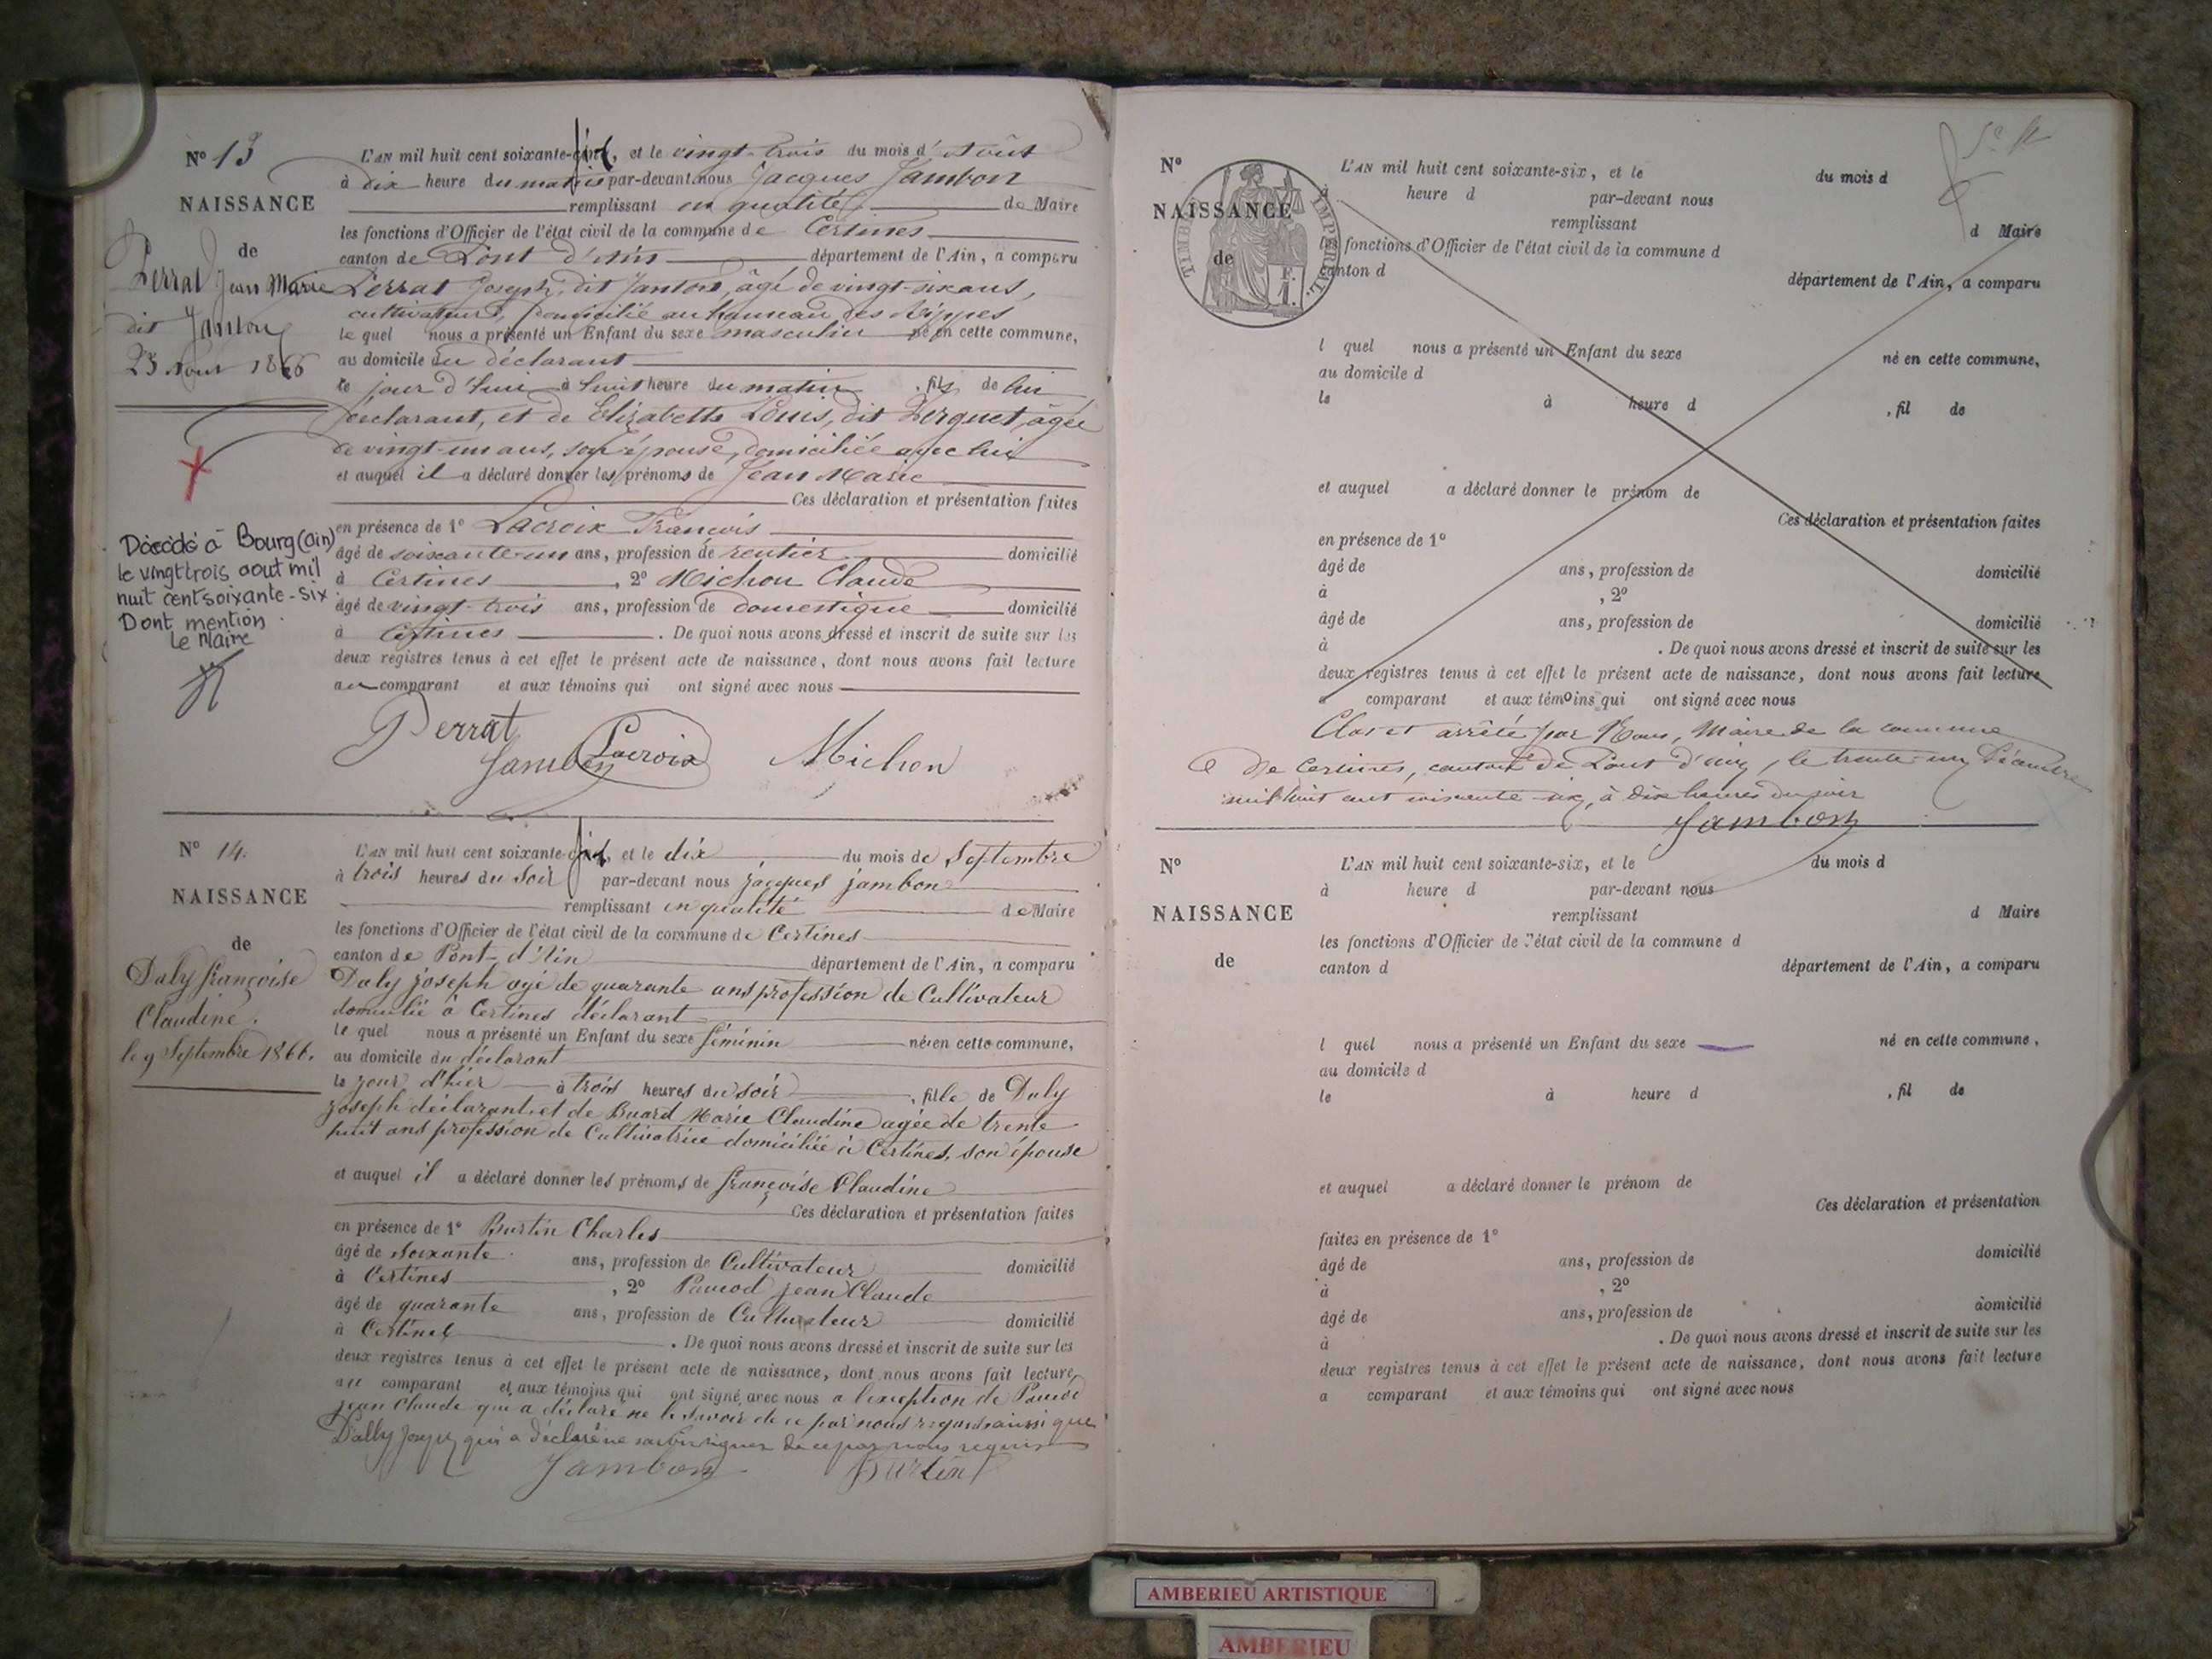 N° 13
NAISSANCE
de
Perrat Jean Marie
dit Janton
23 Aout 1866
Décédé à Bourg (Ain)
le vingt trois aout mil
huit cent soixante-six
Dont mention
le Maire
L'AN mil huit cent soixante-six, et le vingt-trois du mois d'Août
à dix heure du matin par-devant nous Jacques Jambon
remplissant en qualité de Maire
les fonctions d'Officier de l'état civil de la commune de Certines
canton de Pont d'Ain département de l'Ain, a comparu
Perrat Joseph, dit Janton, âgé de vingt-six ans,
cultivateur, domicilié au hameau des Rippes
le quel nous a présenté un Enfant du sexe masculin né en cette commune,
au domicile du déclarant
le jour d'hui à huit heure du matin, fils de lui
déclarant, et de Elizabeth Louis, dit Perguet, âgée
de vingt-un ans, son épouse, domiciliée avec lui
et auquel il a déclaré donner les prénoms de Jean Marie
Ces déclaration et présentation faites
en présence de 1° Lacroix François
âgé de soixante-un ans, profession de rentier domicilié
à Certines, 2° Michon Claude
âgé de vingt-trois ans, profession de domestique domicilié
à Certines. De quoi nous avons dressé et inscrit de suite sur les
deux registres tenus à cet effet le présent acte de naissance, dont nous avons fait lecture
au comparant et aux témoins qui ont signé avec nous
Perrat
Jambon Lacroix Michon
N° 14.
NAISSANCE
de
Daly françoise
Claudine.
le 9 Septembre 1866.
L'AN mil huit cent soixante-six, et le dix du mois de Septembre
à trois heures du soir par-devant nous jacques jambon
remplissant en qualité de Maire
les fonctions d'Officier de l'état civil de la commune de Certines
canton de Pont-d'Ain département de l'Ain, a comparu
Daly joseph agé de quarante ans profession de Cultivateur
domicilié à Certines déclarant
le quel nous a présenté un Enfant du sexe féminin née en cette commune,
au domicile du déclarant
le jour d'hier à trois heures du soir, fille de Daly
joseph déclarant et de Buard Marie Claudine agée de trente
huit ans profession de Cultivatrice domiciliée à Certines, son épouse
et auquel il a déclaré donner les prénoms de françoise Claudine
Ces déclaration et présentation faites
en présence de 1° Burtin Charles
âgé de soixante ans, profession de Cultivateur domicilié
à Certines, 2° Paucod jean Claude
âgé de quarante ans, profession de Cultivateur domicilié
à Certines. De quoi nous avons dressé et inscrit de suite sur les
deux registres tenus à cet effet le présent acte de naissance, dont nous avons fait lecture
au comparant et aux témoins qui ont signé avec nous a lexception de
jean Claude qui a déclaré ne le savoir de ce par nous requis ainsi que
Dally Joseph qui a déclaré ne savoir signer de ce par nous requis
Jambon Burtin
N°
NAISSANCE
de
TIMBRE IMPERIAL
L'AN mil huit cent soixante-six, et le du mois d
à heure d par-devant nous
remplissant d Maire
les fonctions d'Officier de l'état civil de la commune d
canton d département de l'Ain, a comparu
l quel nous a présenté un Enfant du sexe né en cette commune,
au domicile d
le à heure d , fil de
et auquel a déclaré donner le prénom de
Ces déclaration et présentation faites
en présence de 1°
âgé de ans, profession de domicilié
à , 2°
âgé de ans, profession de domicilié
à . De quoi nous avons dressé et inscrit de suite sur les
deux registres tenus à cet effet le présent acte de naissance, dont nous avons fait lecture
a comparant et aux témoins qui ont signé avec nous
Clos et arrêté par Nous, Maire de la commune
de Certines, canton de Pont d'ain, le trente-un Décembre
mil huit cent soixante-six, à dix heures du soir
Jambon
N°
NAISSANCE
de
L'AN mil huit cent soixante-six, et le du mois d
à heure d par-devant nous
remplissant d Maire
les fonctions d'Officier de l'état civil de la commune d
canton d département de l'Ain, a comparu
l quel nous a présenté un Enfant du sexe né en cette commune,
au domicile d
le à heure d , fil de
et auquel a déclaré donner le prénom de
Ces déclaration et présentation
faites en présence de 1°
âgé de ans, profession de domicilié
à , 2°
âgé de ans, profession de domicilié
à . De quoi nous avons dressé et inscrit de suite sur les
deux registres tenus à cet effet le présent acte de naissance, dont nous avons fait lecture
a comparant et aux témoins qui ont signé avec nous
AMBERIEU ARTISTIQUE
AMBERIEU